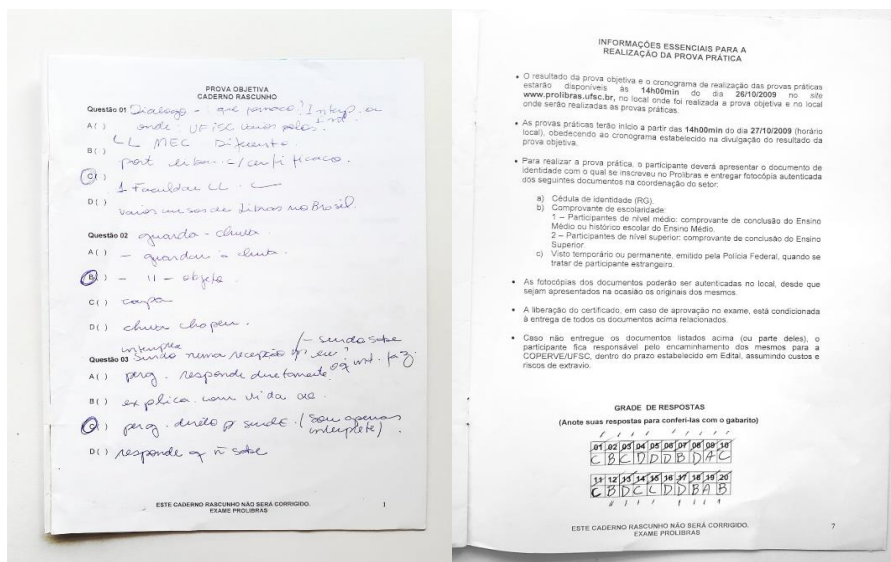 PROVA OBJETIVA
CADERNO RASCUNHO
Questão 01 Dialogo - que Interp. ou
A( ) onde: UFSC varios polos. Inst.
B( ) LL MEC Diferente
port libras c/ certificacao.
C( )
1 Faculdade LL
D( ) varios cursos de Libras no Brasil.
Questão 02 guarda-chuva
A( ) - guardar - chuva
B( ) - 11 - objeto
C( ) capa
D( ) chuva chapeu.
interprete - surdo sabe
Questão 03 Surdo numa recepção
A( ) perg. responde diretamente
B( ) explica com
C( ) perg. direto p surdo. (Sou apenas
interprete).
D( ) responde q ñ sabe
ESTE CADERNO RASCUNHO NÃO SERÁ CORRIGIDO.
EXAME PROLIBRAS
1
INFORMAÇÕES ESSENCIAIS PARA A
REALIZAÇÃO DA PROVA PRÁTICA
• O resultado da prova objetiva e o cronograma de realização das provas práticas
estarão disponíveis às 14h00min do dia 26/10/2009 no site
www.prolibras.ufsc.br, no local onde foi realizada a prova objetiva e no local
onde serão realizadas as provas práticas.
• As provas práticas terão início a partir das 14h00min do dia 27/10/2009 (horário
local), obedecendo ao cronograma estabelecido na divulgação do resultado da
prova objetiva.
• Para realizar a prova prática, o participante deverá apresentar o documento de
identidade com o qual se inscreveu no Prolibras e entregar fotocópia autenticada
dos seguintes documentos na coordenação do setor:
a) Cédula de identidade (RG).
b) Comprovante de escolaridade:
1 – Participantes de nível médio: comprovante de conclusão do Ensino
Médio ou histórico escolar do Ensino Médio.
2 – Participantes de nível superior: comprovante de conclusão do Ensino
Superior.
c) Visto temporário ou permanente, emitido pela Polícia Federal, quando se
tratar de participante estrangeiro.
• As fotocópias dos documentos poderão ser autenticadas no local, desde que
sejam apresentados na ocasião os originais dos mesmos.
• A liberação do certificado, em caso de aprovação no exame, está condicionada
à entrega de todos os documentos acima relacionados.
• Caso não entregue os documentos listados acima (ou parte deles), o
participante fica responsável pelo encaminhamento dos mesmos para a
COPERVE/UFSC, dentro do prazo estabelecido em Edital, assumindo custos e
riscos de extravio.
GRADE DE RESPOSTAS
(Anote suas respostas para conferi-las com o gabarito)
01 02 03 04 05 06 07 08 09 10
C B C D D D B D A C
11 12 13 14 15 16 17 18 19 20
C B D C C D D B A B
ESTE CADERNO RASCUNHO NÃO SERÁ CORRIGIDO.
EXAME PROLIBRAS
7